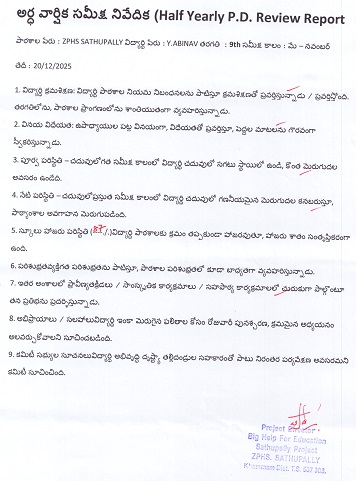 అర్ధ వార్షిక సమీక్ష నివేదిక (Half Yearly P.D. Review Report
పాఠశాల పేరు : ZPHS SATHUPALLY విద్యార్థి పేరు : Y.ABINAV తరగతి : 9th సమీక్ష కాలం : మే – నవంబర్
తేది : 20/12/2025
1. విద్యార్థి క్రమశిక్షణ: విద్యార్థి పాఠశాల నియమ నిబంధనలను పాటిస్తూ క్రమశిక్షణతో ప్రవర్తిస్తున్నాడు / ప్రవర్తిస్తోంది.
తరగతిలోను, పాఠశాల ప్రాంగణంలోను శాంతియుతంగా వ్యవహరిస్తున్నాడు.
2. వినయ విధేయత: ఉపాధ్యాయుల పట్ల వినయంగా, విధేయతతో ప్రవర్తిస్తూ, పెద్దల మాటలను గౌరవంగా
స్వీకరిస్తున్నాడు.
3. పూర్వ పరిస్థితి – చదువులోగత సమీక్ష కాలంలో విద్యార్థి చదువులో సగటు స్థాయిలో ఉండి, కొంత మెరుగుదల
అవసరం ఉండేది.
4. నేటి పరిస్థితి – చదువులోప్రస్తుత సమీక్ష కాలంలో విద్యార్థి చదువులో గణనీయమైన మెరుగుదల కనబరుస్తూ,
పాఠ్యాంశాల అవగాహన మెరుగుపడింది.
5. స్కూలు హాజరు పరిస్థితి (87/.)విద్యార్థి పాఠశాలకు క్రమం తప్పకుండా హాజరవుతూ, హాజరు శాతం సంతృప్తికరంగా
ఉంది.
6. పరిశుభ్రతవ్యక్తిగత పరిశుభ్రతను పాటిస్తూ, పాఠశాల పరిశుభ్రతలో కూడా బాధ్యతగా వ్యవహరిస్తున్నాడు.
7. ఇతర అంశాలలో ప్రావీణ్యతక్రీడలు / సాంస్కృతిక కార్యక్రమాలు / సహపాఠ్య కార్యక్రమాలలో చురుకుగా పాల్గొంటూ
తన ప్రతిభను ప్రదర్శిస్తున్నాడు.
8. అభిప్రాయాలు / సలహాలువిద్యార్థి ఇంకా మెరుగైన ఫలితాల కోసం రోజువారీ పునశ్చరణ, క్రమమైన అధ్యయనం
అలవర్చుకోవాలని సూచించబడింది.
9. కమిటీ సభ్యుల సూచనలువిద్యార్థి అభివృద్ధి దృష్ట్యా తల్లిదండ్రుల సహకారంతో పాటు నిరంతర పర్యవేక్షణ అవసరమని
కమిటీ సూచించింది.
Project Director
Big Help For Education
Sathupally Project
ZPHS, SATHUPALLY
Khammam Dist. T.S. 507 303.